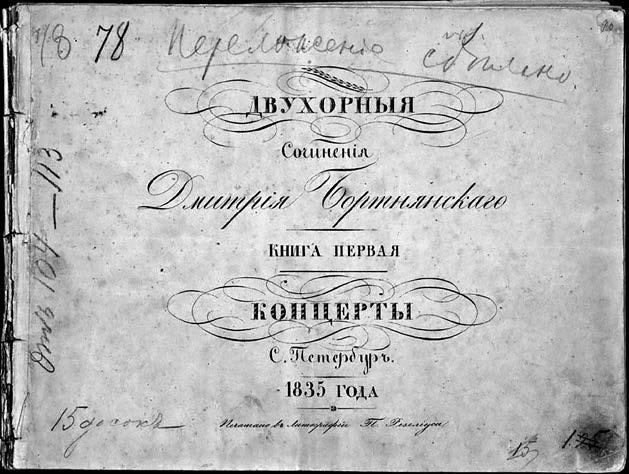 78 78 Переложенію сдѣлано.
ДВУХОРНЫЯ
Сочиненія
Дмитрія Бортнянскаго
КНИГА ПЕРВАЯ
КОНЦЕРТЫ
С. Петербургъ.
1835 ГОДА
Печатано въ Литографіи П. Гезеліуса
15 досокъ
15
104—113